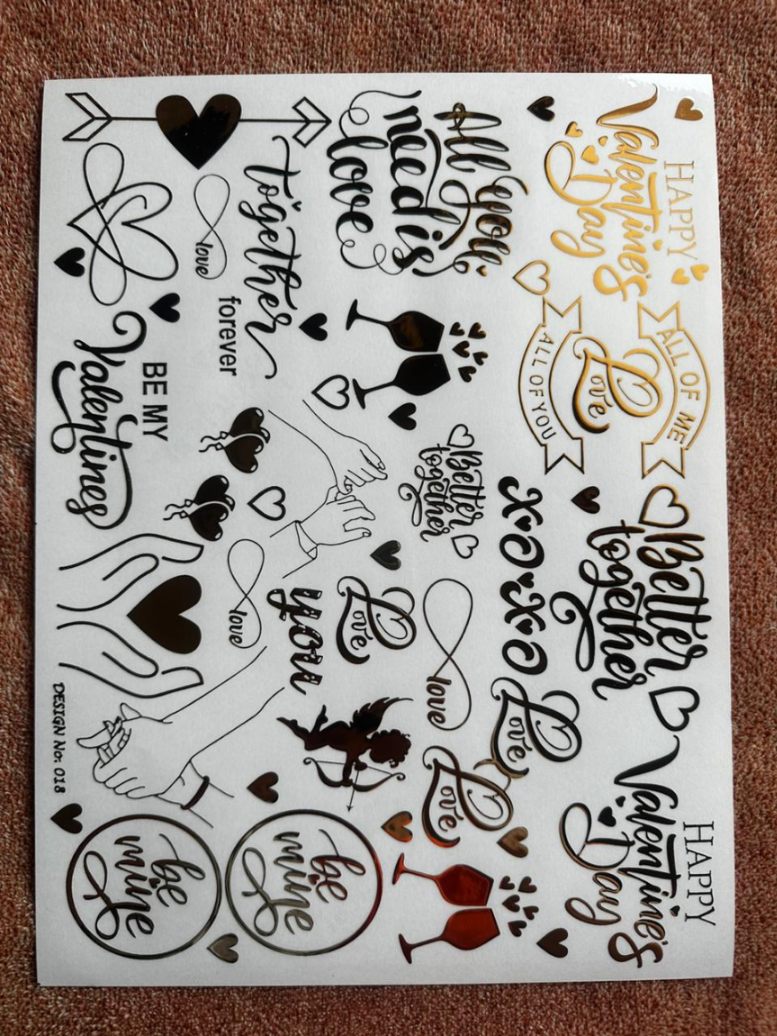 HAPPY
Valentine's
Day
All you
need is
love
together
forever
love
BE MY
Valentines
ALL OF ME
Love
ALL OF YOU
Better
together
Better
together
XOXO
Love
you
love
love
Love
Love
HAPPY
Valentine's
Day
be
mine
be
mine
DESIGN No: 018